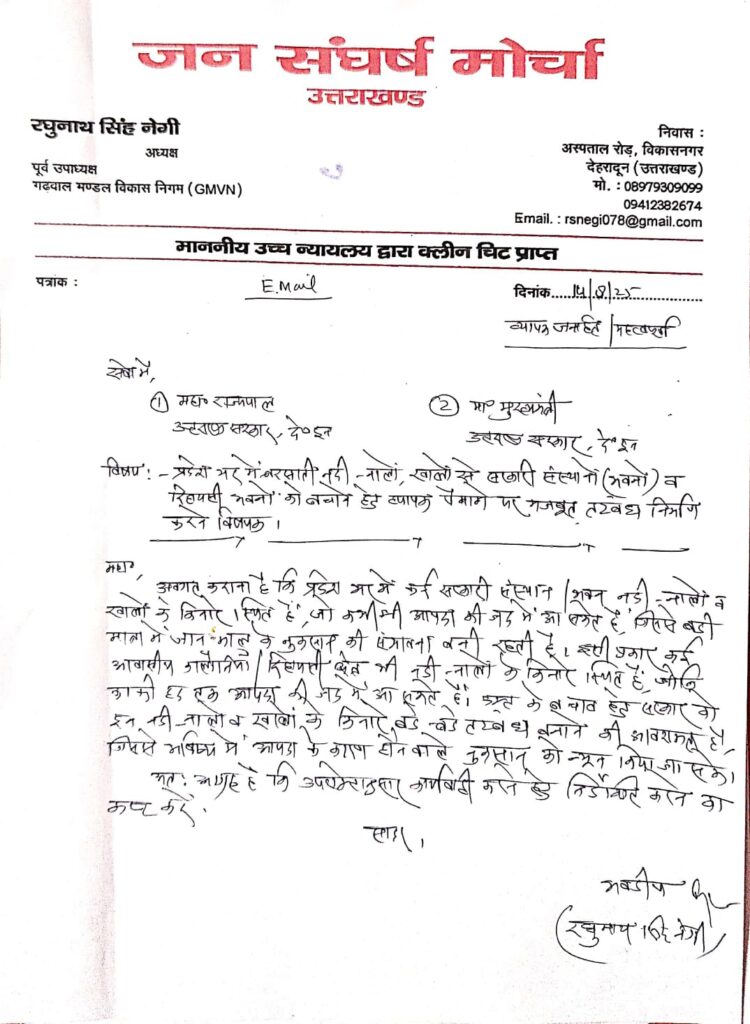 जन संघर्ष मोर्चा
उत्तराखण्ड
रघुनाथ सिंह नेगी
अध्यक्ष
पूर्व उपाध्यक्ष
गढ़वाल मण्डल विकास निगम (GMVN)
निवास :
अस्पताल रोड़, विकासनगर
देहरादून (उत्तराखण्ड)
मो. : 08979309099
09412382674
Email. : rsnegi078@gmail.com
माननीय उच्च न्यायलय द्वारा क्लीन चिट प्राप्त
पत्रांक :
E.Mail
दिनांक 14/8/25
व्यापक जनहित / महत्वपूर्ण
सेवा में,
① महा० राज्यपाल
उत्तराखण्ड सरकार, दे० दून
② मा० मुख्यमंत्री
उत्तराखण्ड सरकार, दे० दून
विषय :- प्रदेश भर में बरसाती नदी-नालों, खालों से सरकारी संस्थानों (भवनों) व
रिहायशी भवनों को बचाने हेतु व्यापक पैमाने पर मजबूत तटबंध निर्माण
करने विषयक।
महो०,
अवगत कराना है कि प्रदेश भर में कई सरकारी संस्थान / भवन नदी-नालों व
खालों के किनारे स्थित हैं, जो कभी भी आपदा की जद में आ सकते हैं, जिससे बड़ी
मात्रा में जान-माल के नुकसान की संभावना बनी रहती है। इसी प्रकार कई
आवासीय कालोनियां / रिहायशी क्षेत्र भी नदी-नालों के किनारे स्थित हैं, जोकि
काफी हद तक आपदा की जद में आ सकते हैं। के बचाव हेतु सरकार को
इन नदी-नालों व खालों के किनारे बड़े-बड़े तटबंध बनाने की आवश्यकता है,
जिससे भविष्य में आपदा के कारण होने वाले नुकसान को न्यून किया जा सके।
अतः आग्रह है कि उपरोक्तानुसार कार्यवाही करने हेतु निर्देशित करने का
कष्ट करें।
सादर,
भवदीय
(रघुनाथ सिंह नेगी)